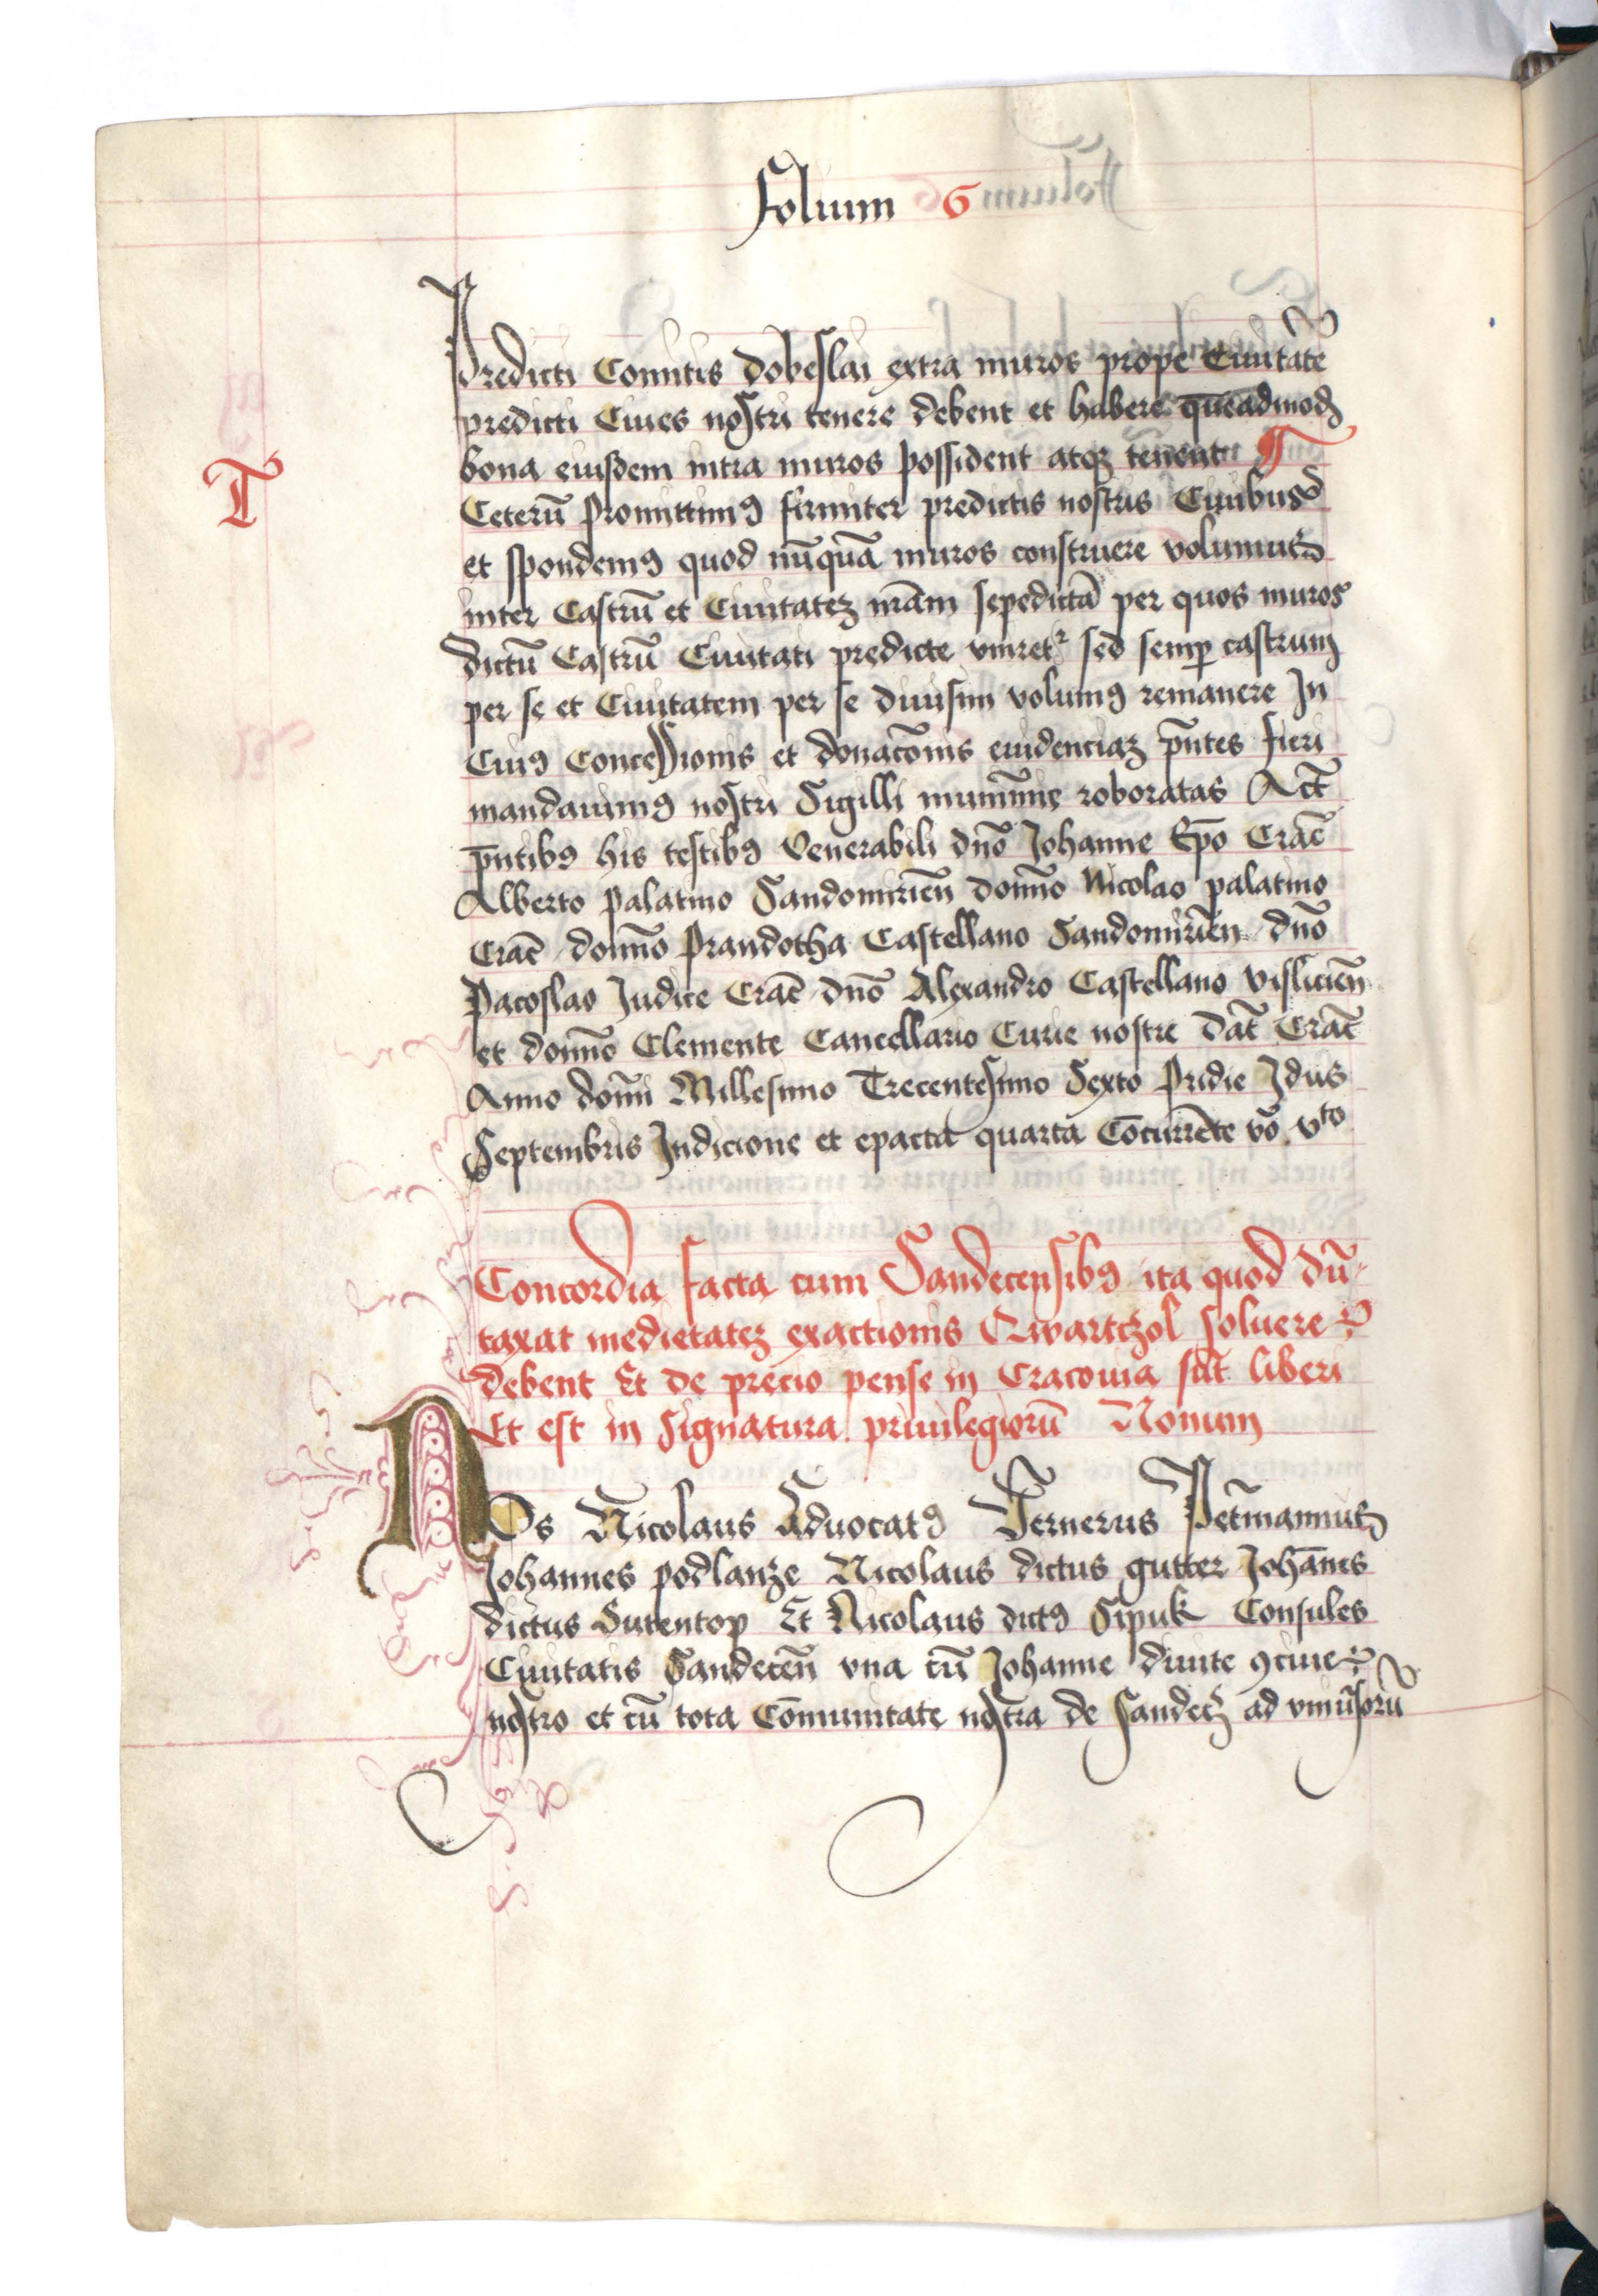 Folium 6
Predicti Comitis Dobeslai extra muros prope Ciuitatē
predicti Ciues nostri tenere debent et habere quēadmodꝫ
bona eiusdem intra muros possident atqꝫ tenent ¶
T
Ceterū Promittimꝰ firmiter predictis nostris Ciuibus
et spondemꝰ quod nūquā muros construere volumus
inter Castrū et Ciuitateꝫ nr̄am sepedictā per quos muros
dictū Castrū Ciuitati predicte vniretʳ sed semꝑ castrum
per se et Ciuitatem per se diuisim volumꝰ remanere In
Cuiꝰ Concessionis et donac̄onis euidenciaꝫ p̄ntes fieri
mandauimꝰ nostri Sigilli munimīe roboratas Act̄
p̄ntibꝰ his testibꝰ Venerabili dn̄o Johanne Ep̄o Crac̄
Alberto Palatino Sandomirien̄ domīo Nicolao palatino
Crac̄ domīo Prandotha Castellano Sandomirien̄ dn̄o
Pacoslao Iudice Crac̄ dn̄o Alexandro Castellano Vislicien̄
et domīo Clemente Cancellario Curie nostre Dat̄ Crac̄
Anno domī Millesimo Trecentesimo Sexto Pridie Idus
Septembris Indicione et epacta quarta Cōcurrēte vo̅ vto
Concordia facta cum Sandecensibꝰ ita quod dū-
taxat medietateꝫ exactionis Qwartczol soluere
debent Et de precio pense in Cracouia sūt liberi
Et est in Signatura priuilegiorū Nonum
NOs Nicolaus Aduocatꝰ Wernerus Petr̄mannus
Johannes podlanze Nicolaus dictus gutter Johānes
dictus Surentop Et Nicolaus dictꝰ Sipuk Consules
Ciuitatis Sandecen̄ vna cū Johanne diuite ꝯciue
nostro et cū tota Cōmunitate nostra de Sandecꝫ ad vniu̅sorū